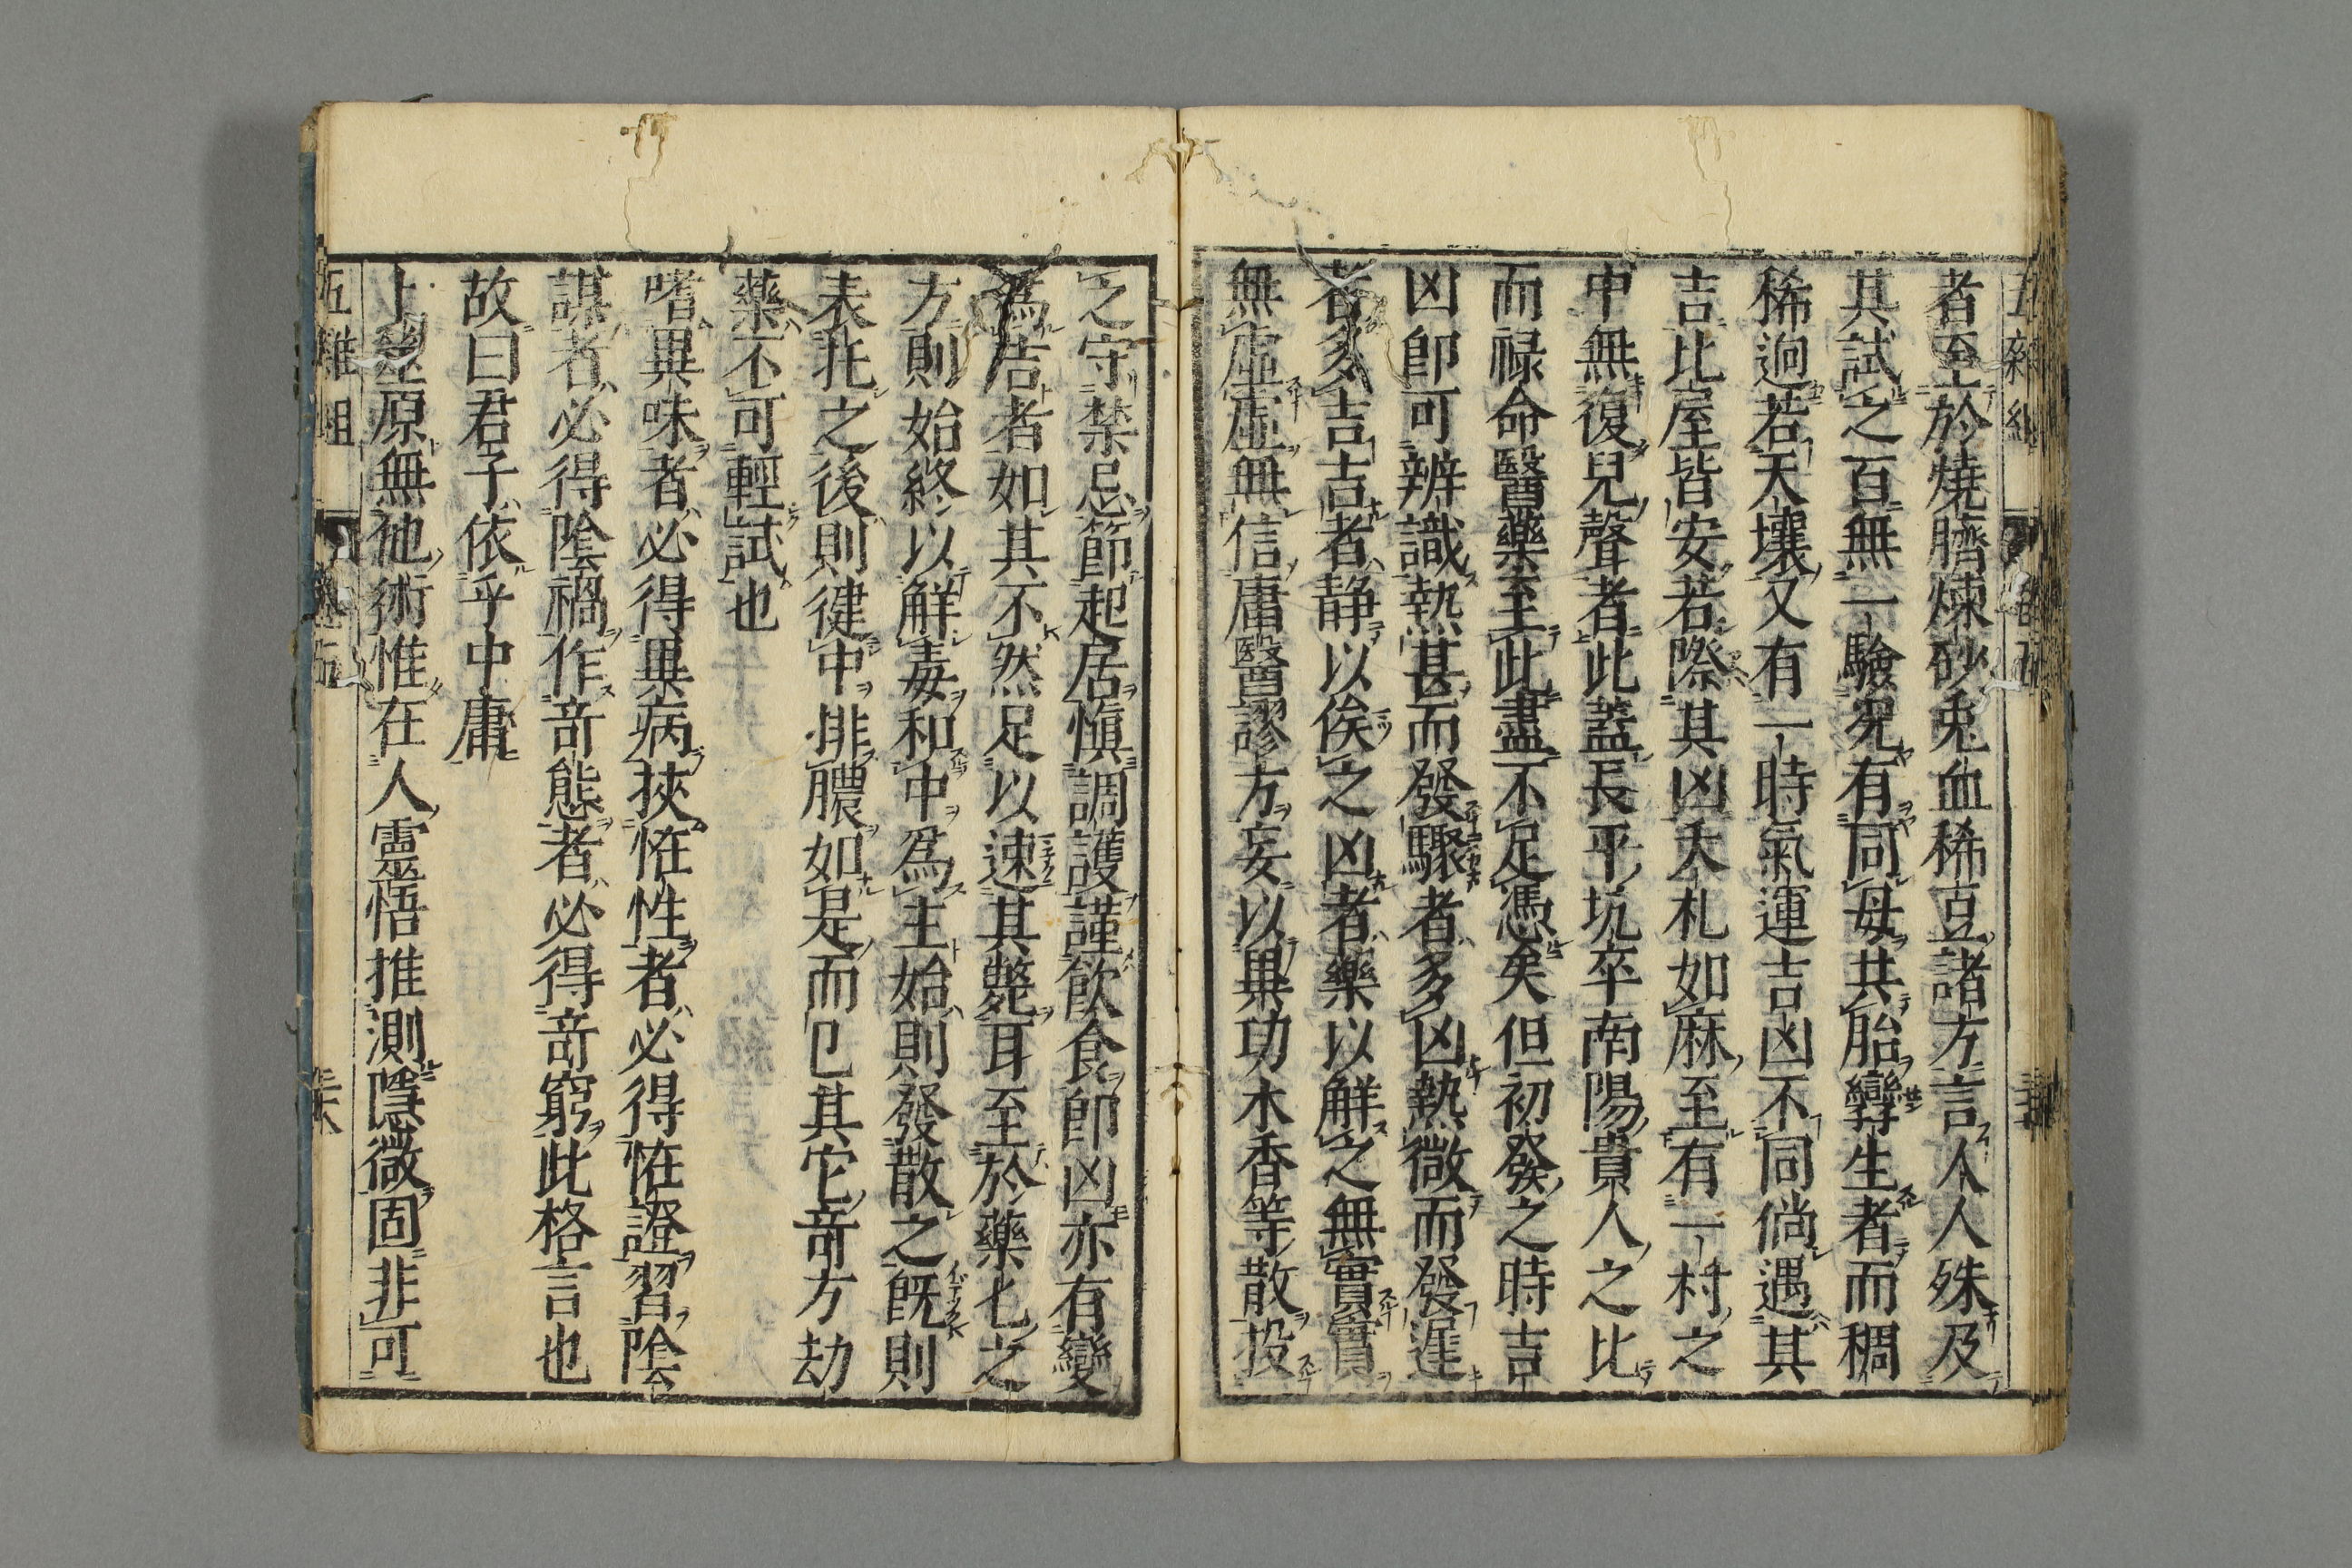 者至於燒臍煉砂兎血稀豆諸方言人人殊及
其試之百無一驗況有同母共胎孿生者而稠
稀逈若天壤又有一時氣運吉凶不同倘遇其
吉比屋皆安若際其凶夭札如麻至有一村之
中無復兒聲者此蓋長平坑卒南陽貴人之比
而祿命醫藥至此盡不足憑矣但初發之時吉
凶卽可辨識熱甚而發驟者多凶熱微而發遲
者多吉吉者靜以俟之凶者藥以解之無實實
無虛虛無信庸醫謬方妄以異功木香等散投
之守禁忌節起居愼調護謹飮食卽凶亦有變
爲吉者如其不然足以速其斃耳至於藥七之
方則始終以解毒和中爲主始則發散之旣則
表托之後則徤中排膿如是而已其它竒方劫
藥不可輕試也
嗜異味者必得異病挾恠性者必得恠證習陰
謀者必得陰禍作竒態者必得竒窮此格言也
故曰君子依乎中庸
上筮原無他術惟在人靈悟推測隱微固非可
五雜組